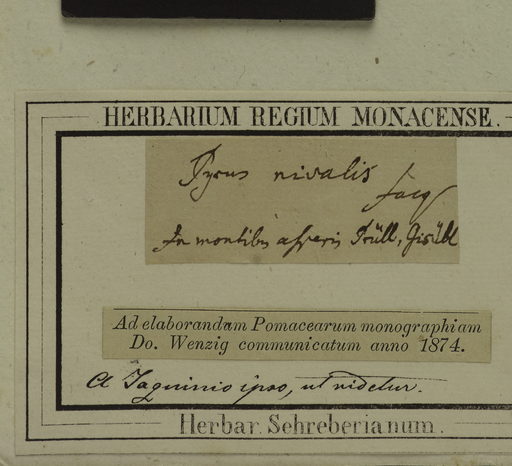 HERBARIUM REGIUM MONACENSE.
Pyrus nivalis
Jacq
In montibus asperis Trüll, Gisübl
Ad elaborandam Pomacearum monographiam
Do. Wenzig communicatum anno 1874.
A Jaquinio ipso, ut videtur.
Herbar. Schreberianum.